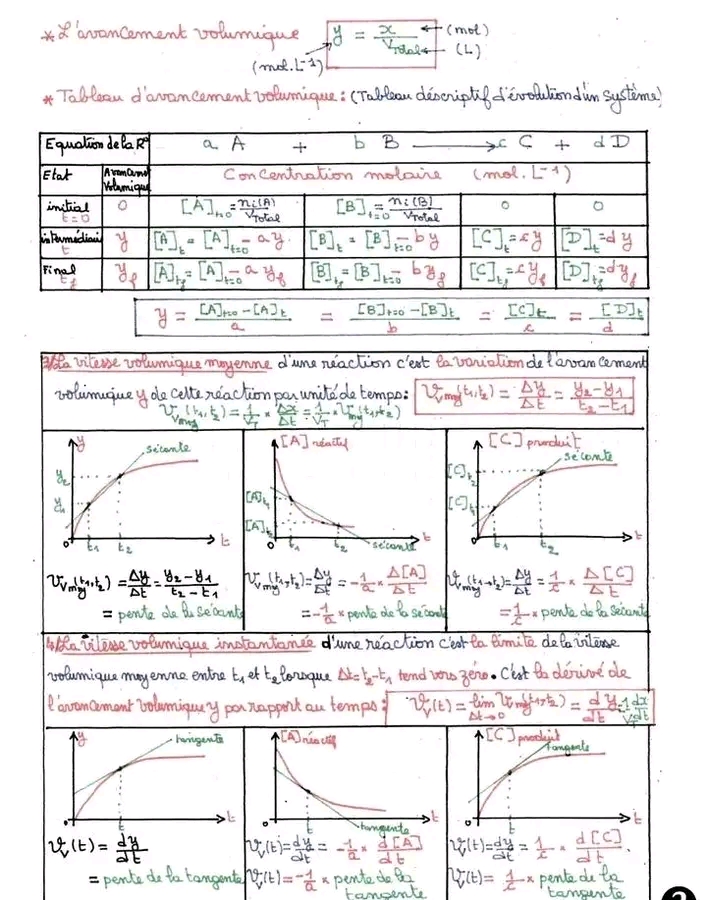 * L'avancement volumique y = x / V_Total (mol) (L)
(mol.L⁻¹)
* Tableau d'avancement volumique : (Tableau déscriptif d'évolution d'un système)
Equation de la R° a A + b B → c C + d D
Etat Avancement Volumique Concentration molaire (mol. L⁻¹)
initial t=0 0 [A]t=0 = ni(A)/V_Total [B]t=0 = ni(B)/V_Total 0 0
intermédiaire t y [A]t = [A]t=0 - a y [B]t = [B]t=0 - b y [C]t = c y [D]t = d y
Final tf yf [A]tf = [A]t=0 - a yf [B]tf = [B]t=0 - b yf [C]tf = c yf [D]tf = d yf
y = ([A]t=0 - [A]t)/a = ([B]t=0 - [B]t)/b = [C]t/c = [D]t/d
3/ La vitesse volumique moyenne d'une réaction c'est la variation de l'avancement
volumique y de cette réaction par unité de temps : Vvmoy(t1,t2) = Δy/Δt = (y2-y1)/(t2-t1)
Vvmoy(t1,t2) = 1/VT × Δx/Δt = 1/VT × Vmoy(t1,t2)
y sécante y2 y1 0 t1 t2 t
[A] réactif [A]t1 [A]t2 0 t1 t2 sécante t
[C] produit sécante [C]t2 [C]t1 0 t1 t2 t
Vvmoy(t1,t2) = Δy/Δt = (y2-y1)/(t2-t1)
= pente de la sécante
Vvmoy(t1,t2) = Δy/Δt = -1/a × Δ[A]/Δt
= -1/a × pente de la sécante
Vvmoy(t1→t2) = Δy/Δt = 1/c × Δ[C]/Δt
= 1/c × pente de la sécante
4/ La vitesse volumique instantanée d'une réaction c'est la limite de la vitesse
volumique moyenne entre t1 et t2 lorsque Δt = t2-t1 tend vers zéro. C'est la dérivé de
l'avancement volumique y par rapport au temps : Vv(t) = lim Δt→0 Vvmoy(t1,t2) = dy/dt = 1/VT dx/dt
y tangente 0 t t
[A] réactif 0 t tangente t
[C] produit tangente 0 t t
Vv(t) = dy/dt
= pente de la tangente
Vv(t) = dy/dt = -1/a × d[A]/dt
Vv(t) = -1/a × pente de la tangente
Vv(t) = dy/dt = 1/c × d[C]/dt.
Vv(t) = 1/c × pente de la tangente